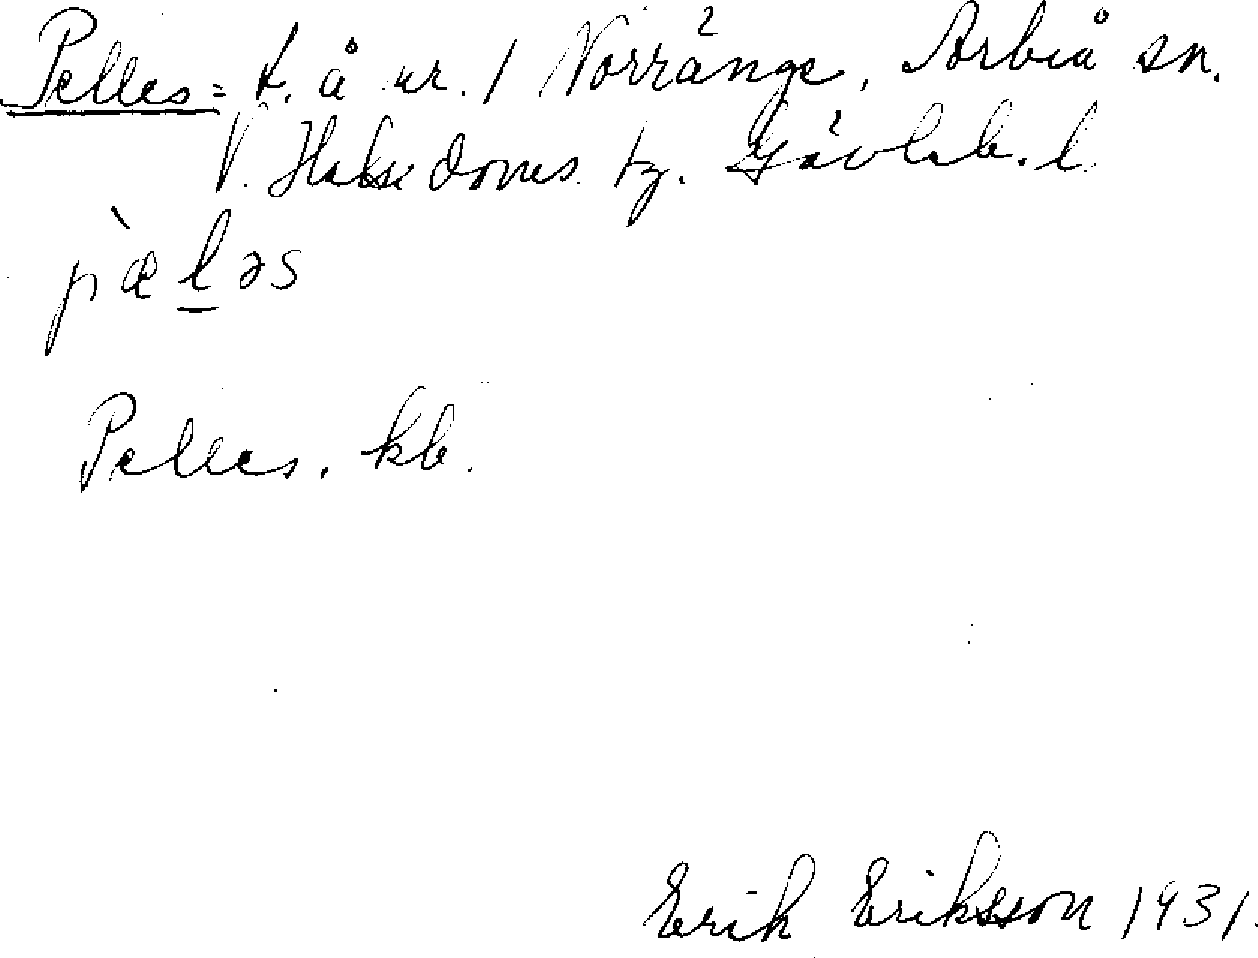 Pelles = t. å nr. 1 Norränge, Arbrå sn.
V. Hälsi doms. tg. Gävleb. l.
p̀æl̲əs
Pelles. kb.
Erik Eriksson 1931.